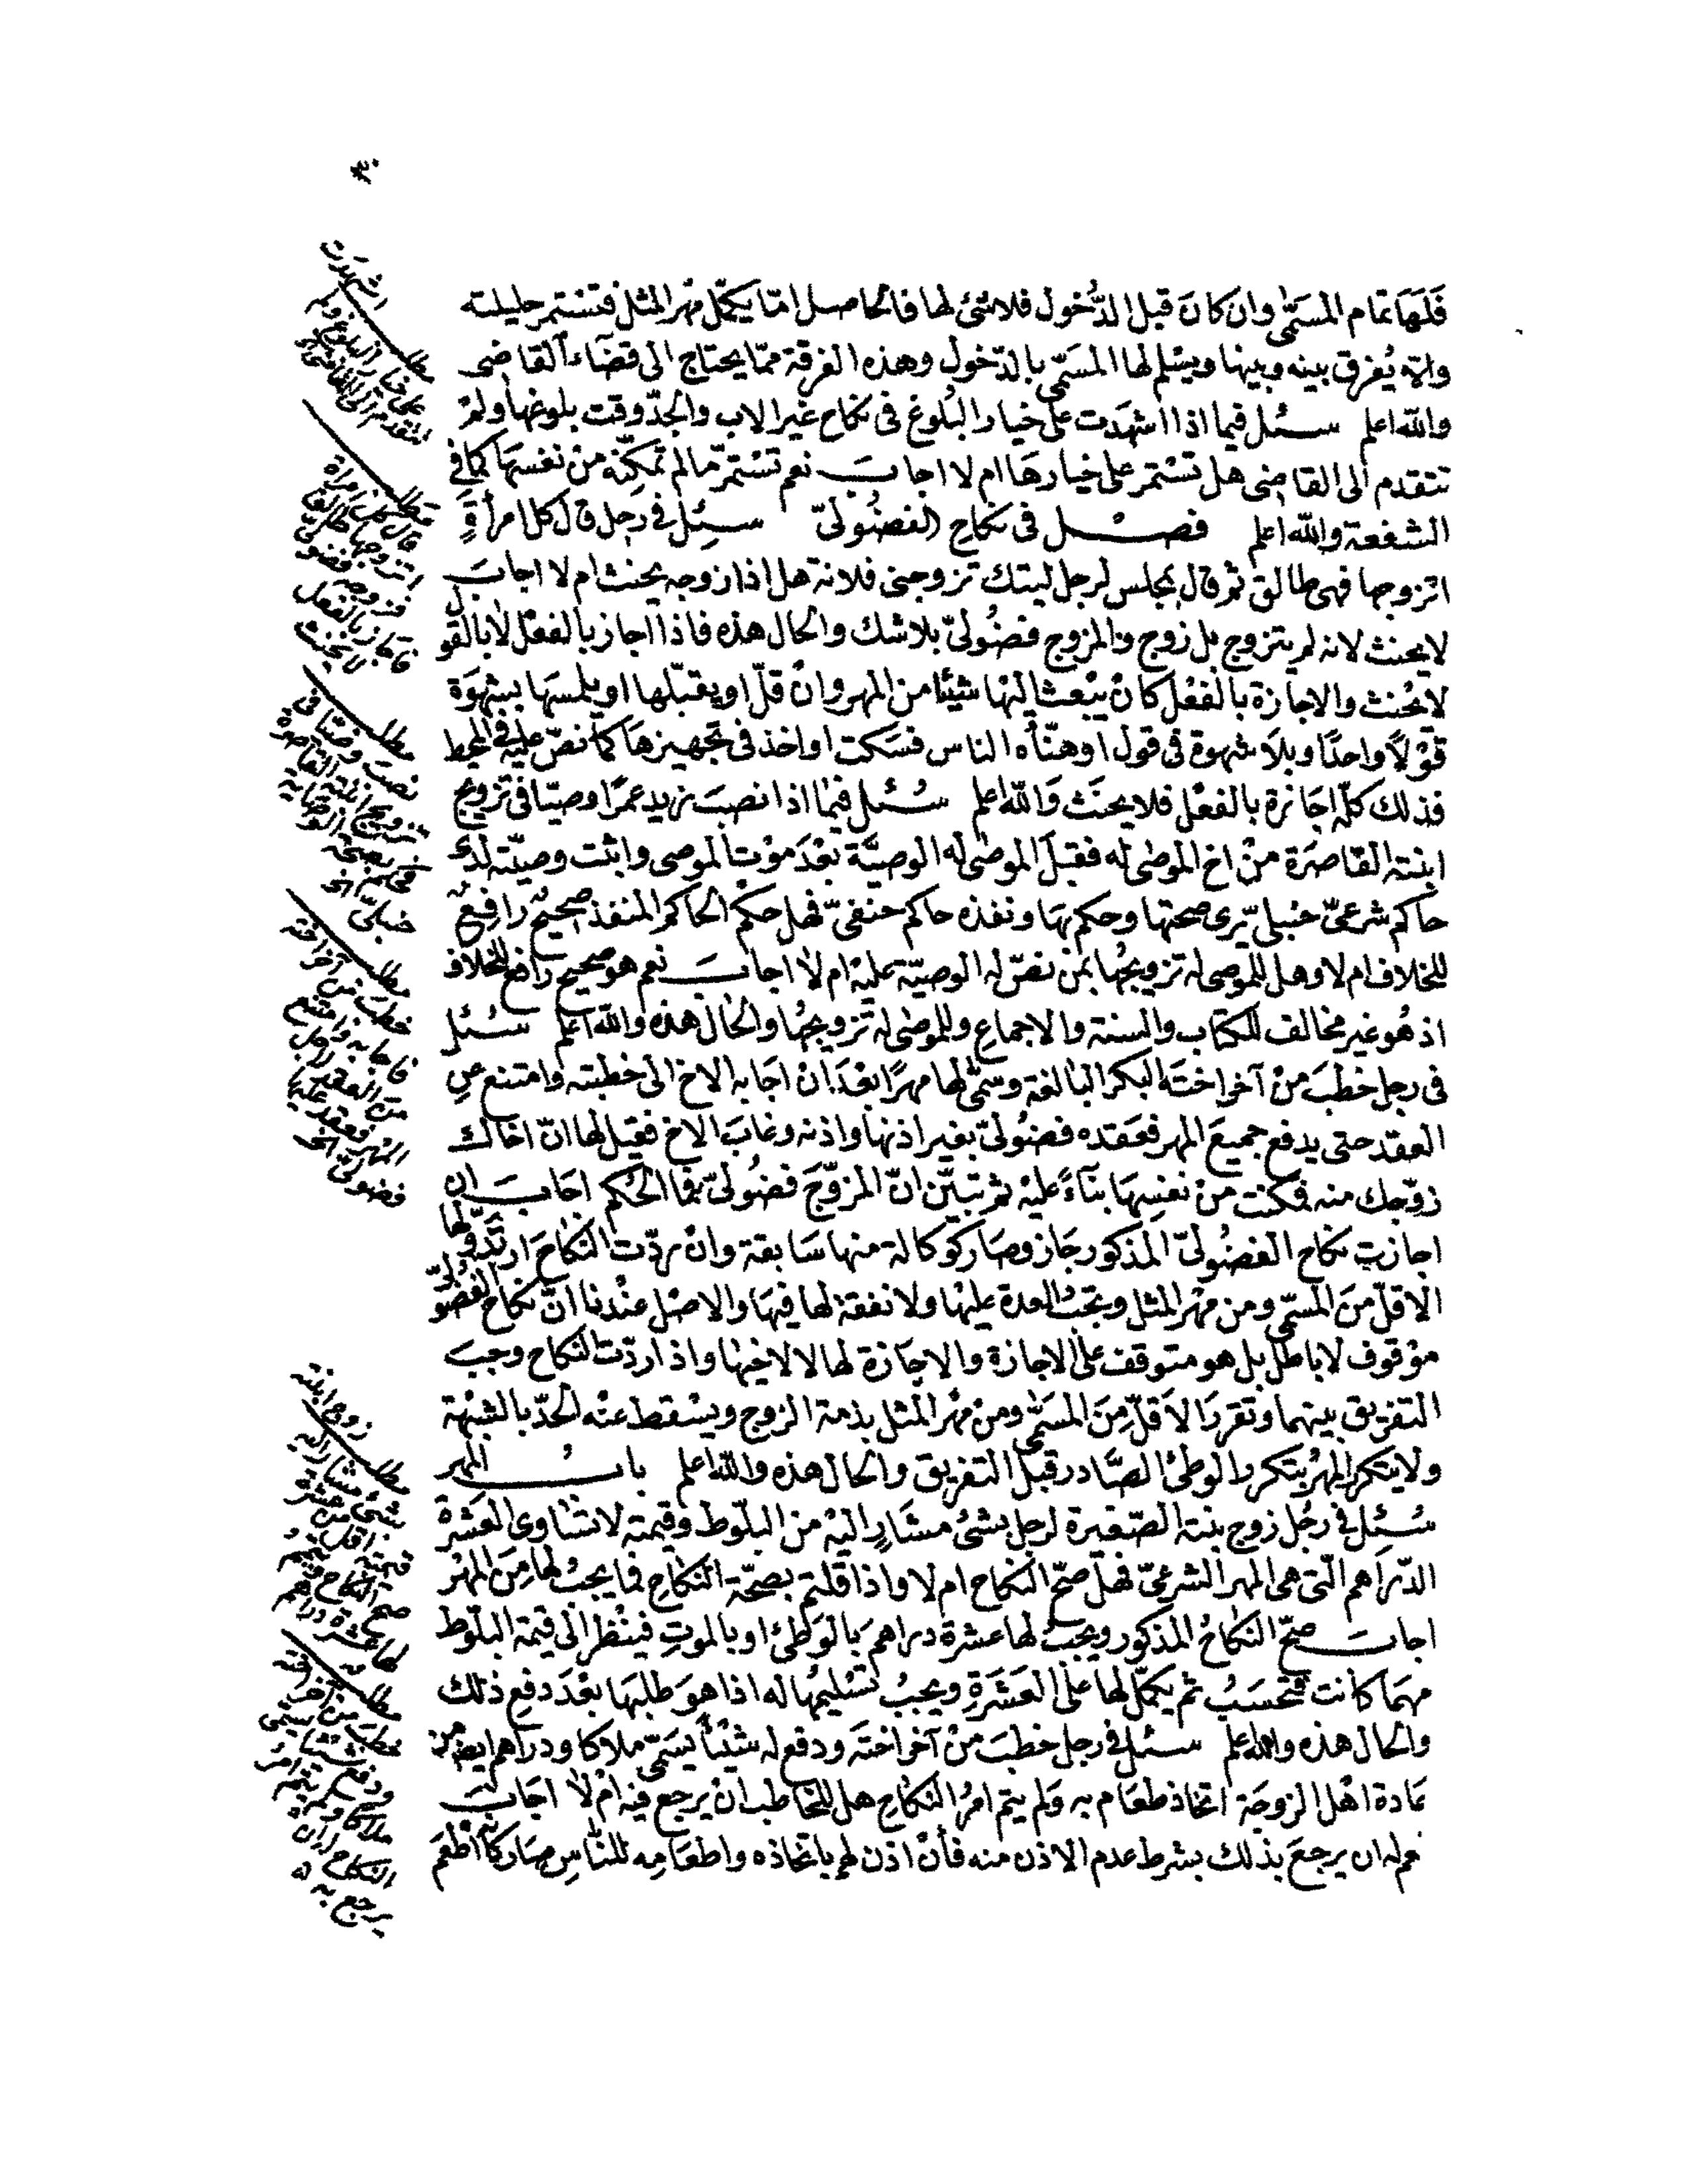 ٣٠
فَلَهَا تمام المسَمّى وان كانَ قبل الدُّخول فلا شئ لها فالحاصل امّا يكمّل مهْر المثل فتستمر حليلته
والّا يُفرق بينه وبينها ويسْلم لها المسَمّى بالدّخول وهذه الفرقة ممّا يحتاج الى قضَآء القاضى
والله اعلم سئل فيما اذا اشهَدت على خيار البُلوغ فى نكاح غير الاب والجدّ وقت بلوغها ولمْ
تتقدم الى القاضى هل تسْتمر على خيارهَا ام لا اجابَ نعم تستمرّ مالم تمكّنه من نفسهَا كما فى
الشفعة والله اعلم فصْل فى نكاح الفضُولىّ سئِل فى رجل قال كل امرأةٍ
اتزوجها فهى طالق ثم قال بمجلس لرجل ليتك تزوجنى فلانة هل اذا زوجه يحنث ام لا اجابَ
لا يحنث لانه لم يتزوج بل زوج والمزوج فضُولىّ بلا شك والحال هذه فاذا اجاز بالفعْل لا بالقول
لا يحْنث والاجازة بالفعْل كانْ يبْعث اليْها شيئا من المهر وانْ قلّ او يقبّلها او يلمسَها بشهوَة
قوْلًا واحدًا وبلَا شهوة فى قول او هنّأه الناس فسَكت او اخذ فى تجهيزهَا كما نصّ عليْه فى المحيط
فذلك كلّه اجَازة بالفعْل فلا يحنَث وَالله اعلم سُئل فيما اذا نصبَ زيد عمرًا وصيّا فى تزويج
ابنته القاصَرة منْ اخ الموصٰى له فقبلَ الموصٰى له الوصيَّة بعْدَ موْت الموصى واثبت وصيّته لدى
حاكم شرعىّ حنْبلىّ يَرى صحتها وحكم بهَا ونفذه حاكم حنفىّ فهل حكْم الحاكم المنفذ صحيْح رافِعْ
للخلاف ام لا وهل للموصى له تزويجُها بمن نصّ له الوصيّة عليْه ام لا اجابَ نعم هو صحيح رافع للخلاف
اذ هُو غير مخالف للكتاب والسنة والاجماعِ وللموصٰى له تزويجُها والحال هذه والله اعلم سُئل
فى رجل خطبَ منْ آخر اختَه البكر البالغة وسمّى لها مهرًا بعْدَ انْ اجَابه الاخ الى خطبته وامتنع عن
العقد حتى يدفع جميعَ المهر فعَقده فضُولىّ بغير اذنها واذنه وغابَ الاخ فقيل لها انّ اخاك
زوّجك منه فمكنت منْ نفسهَا بنآءً عليْه ثم تبيّن انّ المزوّجَ فضُولىّ فما الحُكم اجَابَ ان
اجازت نكاح الفضُولىّ المذكور جَاز وصَار كوكالة منها سَابقة وانْ ردّت النكَاحَ ارتَدَّ ولَها
الاقلّ منَ المسمّى ومن مهْر المثل وتجبُ العدة عليْها ولا نفقة لها فيهَا والاصْل عنْدنا انّ نكاح الفضُولىّ
موْقوف لا باطل بل هو متوقف على الاجازة والاجَازة لها لا لاخيْها واذا ردّت النكاح وجبَ
التفريق بينهما وتقررَ الاَقلّ مِنَ المسَمّى ومنْ مهْر المثل بذمة الزوج ويسْقط عنْه الحدّ بالشبْهة
ولا يتكرر المهْرُ بتكرر الوطئ الصَّادر قبْل التفريق والحال هذه والله اعلم بابُ المهر
سُئِل فى رجُل زوج بنته الصّغيرة لرجل بشئ مشَارٍ اليْه من البلّوط وقيمته لا تسَاوى العَشرة
الدّراهم الّتى هى المهر الشرعىّ فهلْ صحّ النكاح ام لا واذا قلتم بصحّة النكاحِ فما يجبُ لها مِنَ المهْر
اجابَ صحّ النكاحُ المذكور ويجبُ لها عشرة دراهمَ بالوَطئ او بالموتِ فينْظر الى قيمة البلّوط
مهمَا كانت فتحسَبُ ثم يكمّل لها على العَشَرَةِ ويجبُ تسْليمُها له اذا هوَ طلبَهَا بعْدَ دفع ذلك
والحال هذه والله اعلم سئل فى رجل خطبَ منْ آخر اختَه ودفع له شيْئا يُسَمّى ملاكا ودراهم ايضا من
عَادة اهْل الزوجَة اتخاذ طعَام به ولم يتم امرُ النكاحِ هل للخاطب انْ يرجع فيْه امْ لا اجَابَ
نعم له ان يرجعَ بذلك بشرط عدم الاذن منه فأنْ اذن لهم باتخاذه واطعَامِه للنّاسِ صَار كأنّه اطْعَم
اشهدت
على خيار البلوغ ولم
تتقدم الى القاضى
مطلب
قال كل امرأة
اتزوجها طالق
فزوجه فضولى
فاجاز بالفعل
لا يحنث
مطلب
نصب وصيّا فى
تزويج ابنته القاصرة
حنبلىّ
مطلب
خطب من آخر اخته
فاجابه وامتنع
من العقد
المهر فعقد عليه
فضولىّ
زوج ابنته
بشئ مشار اليه
قيمته اقل من عشرة
صح النكاح ويتم
لها عشرة دراهم
مطلب
خطب من آخر اخته
ودفع شيئا يسمى
ملاكا ولم يتم امر
النكاح له ان
يرجع به